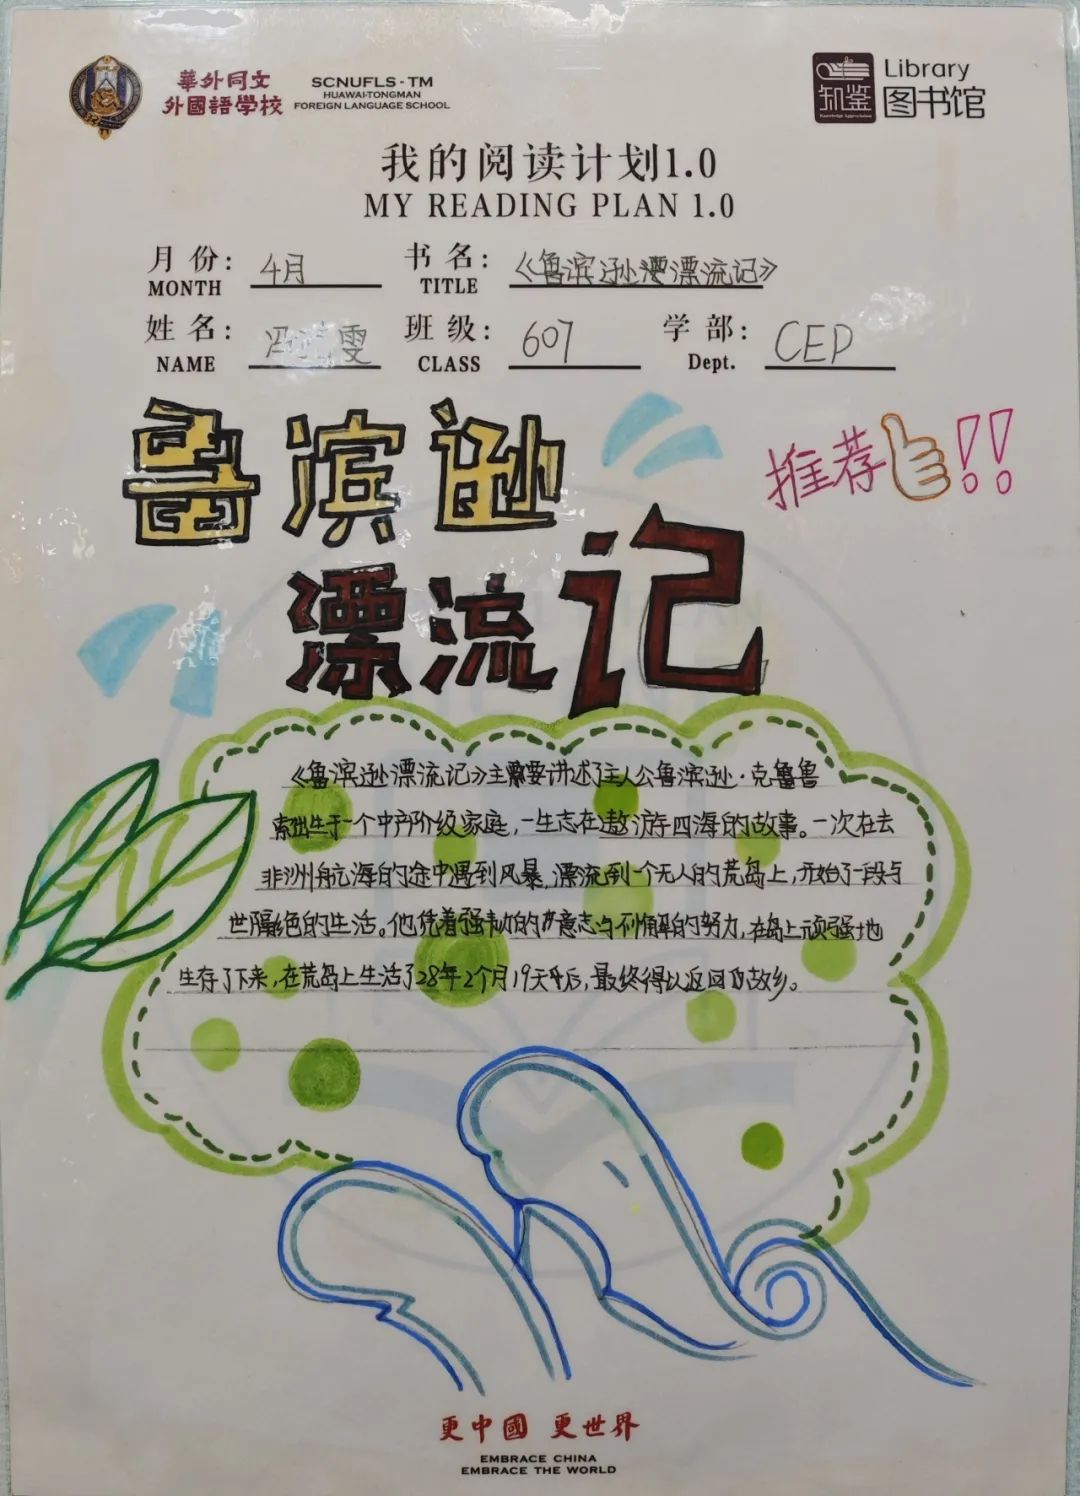 華外同文
外國語學校
SCNUFLS-TM
HUAWAI·TONGMAN
FOREIGN LANGUAGE SCHOOL
知鉴
Knowledge Appreciation
Library
图书馆
我的阅读计划1.0
MY READING PLAN 1.0
月份: 4月 书名: 《鲁滨逊漂流记》
MONTH TITLE
姓名: 冯 雯 班级: 607 学部: CEP
NAME CLASS Dept.
鲁滨逊
推荐!!
漂流记
《鲁滨逊漂流记》主要讲述了主人公鲁滨逊·克鲁鲁
索出生于一个中产阶级家庭,一生志在遨游四海的故事。一次在去
非洲航海的途中遇到风暴,漂流到一个无人的荒岛上,开始了一段与
世隔绝的生活。他凭着强韧的意志与不懈的努力,在岛上顽强地
生存了下来,在荒岛上生活了28年2个月19天后,最终得以返回故乡。
更中國 更世界
EMBRACE CHINA
EMBRACE THE WORLD